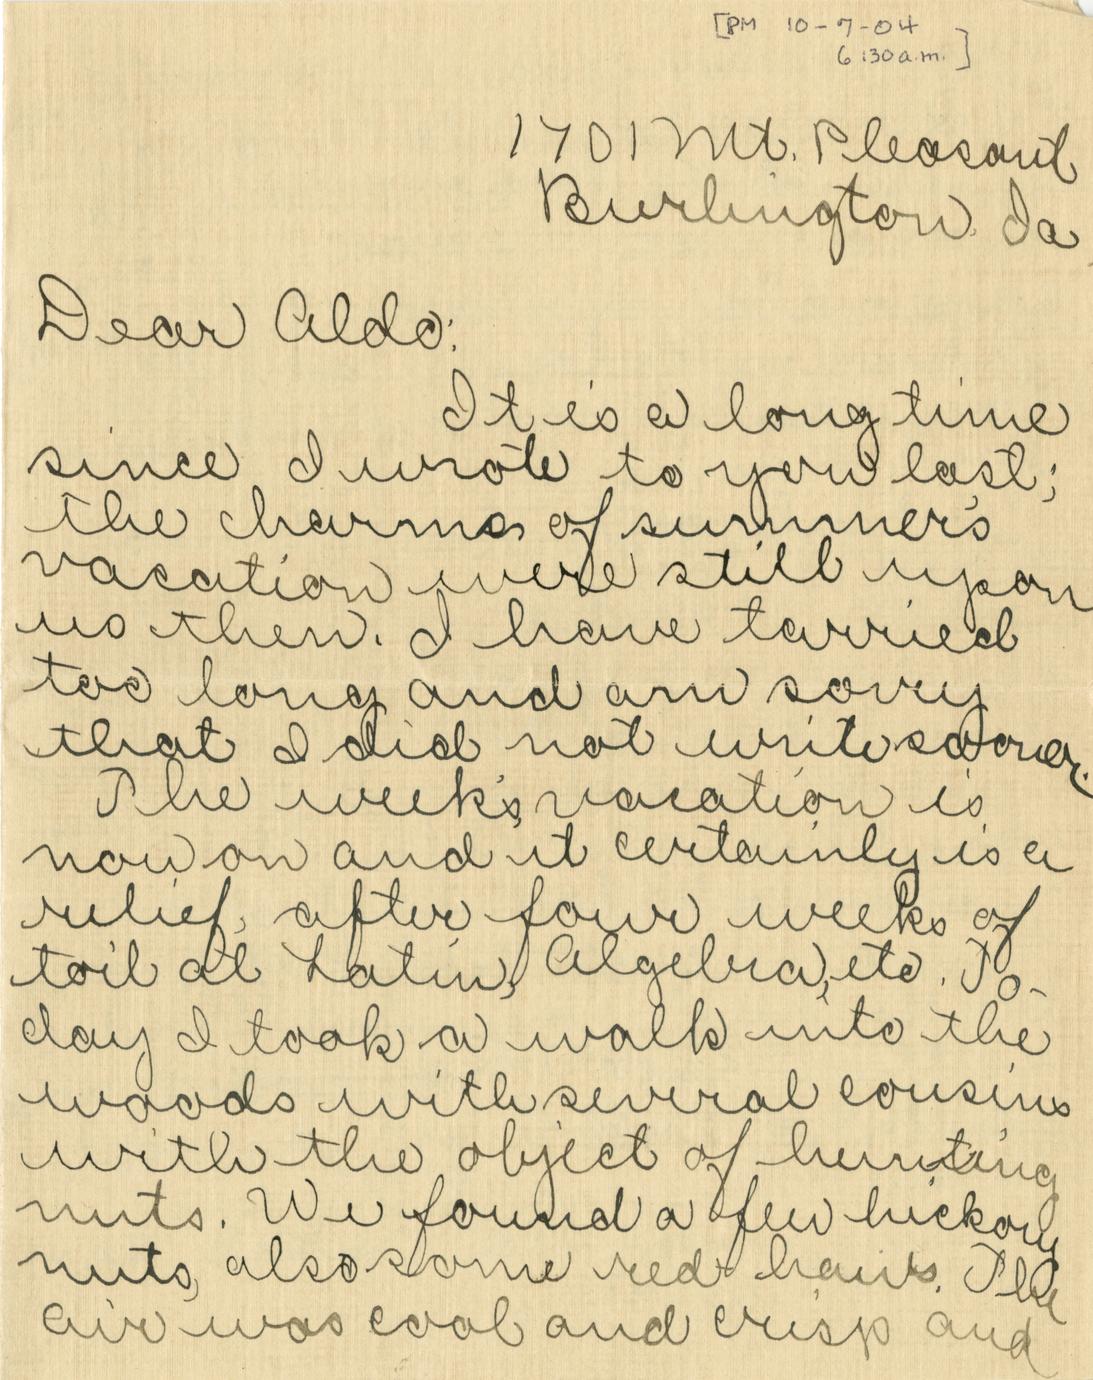 [PM 10-7-04
6:30 a.m.]
1701 Mt. Pleasant
Burlington, Ia
Dear Aldo:
It is a long time
since I wrote to you last;
the charms of summer's
vacation were still upon
us then. I have tarried
too long and am sorry
that I did not write sooner.
The week's vacation is
now on and it certainly is a
relief, after four weeks of
toil at Latin, Algebra, etc. To-
day I took a walk into the
woods with several cousins
with the object of hunting
nuts. We found a few hickory
nuts, also some red haws. The
air was cool and crisp and